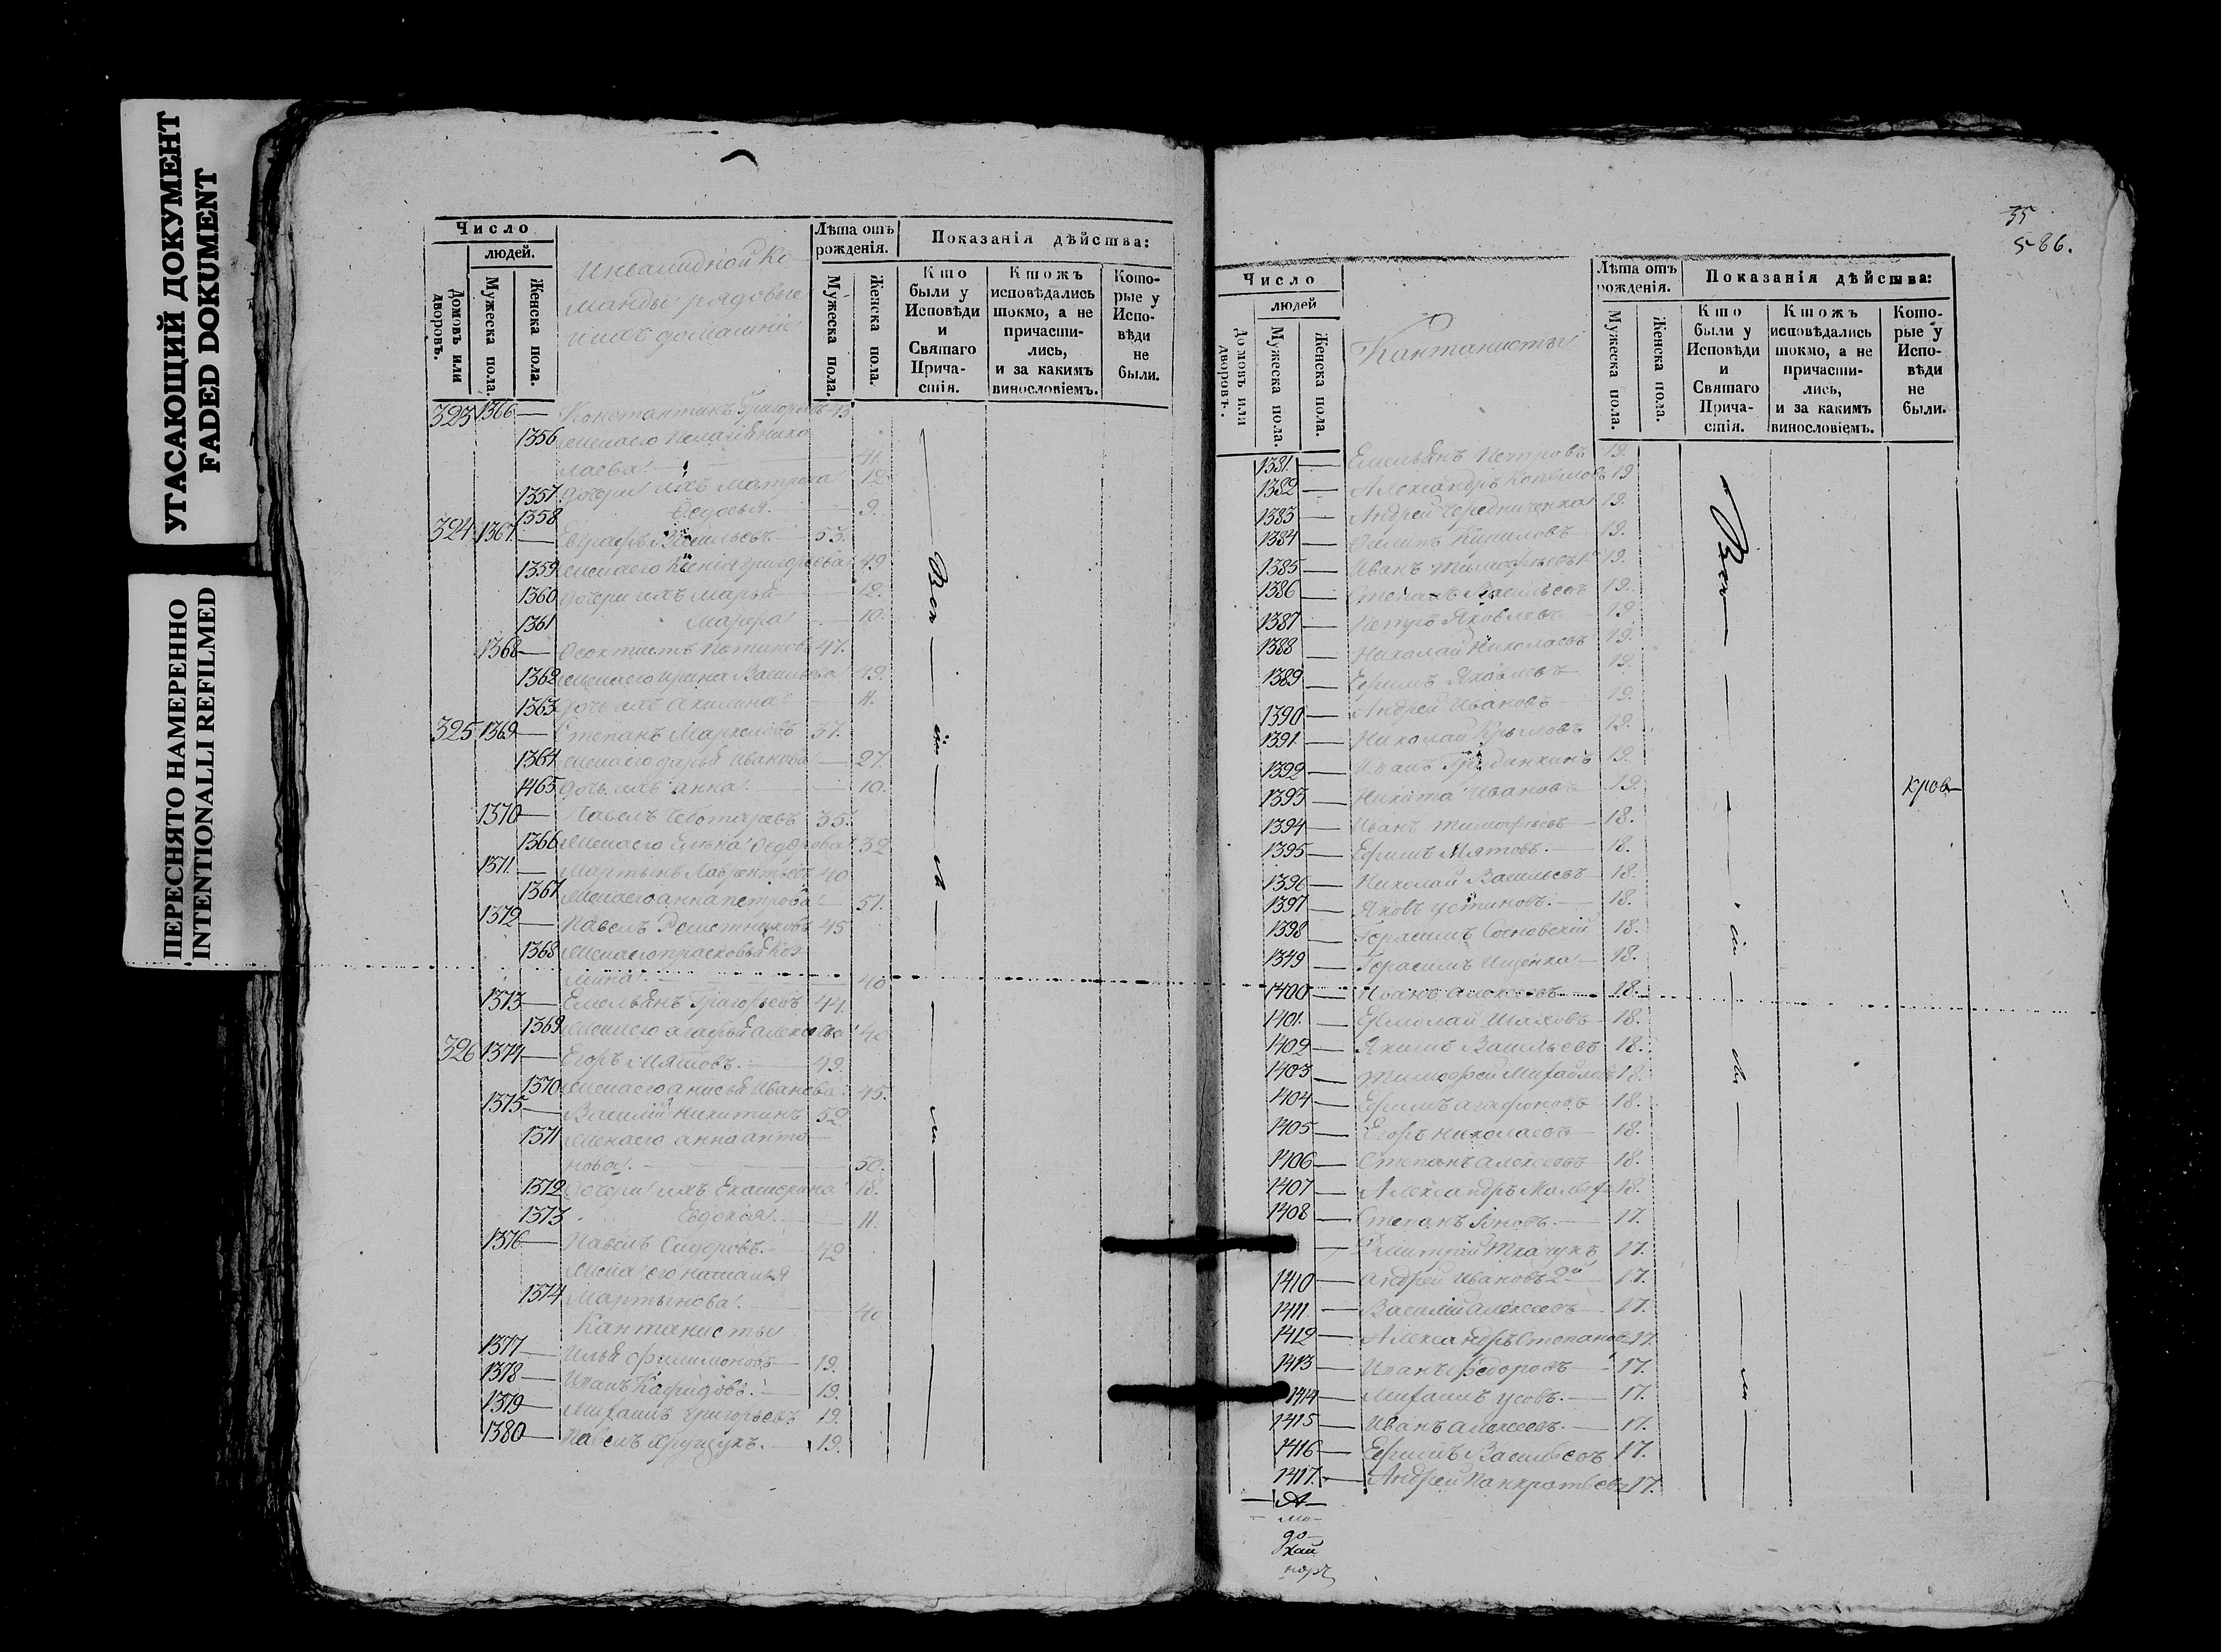 УГАСАЮЩИЙ ДОКУМЕНТ
FADED DOKUMENT
ПЕРЕСНЯТО НАМЕРЕННО
INTENTIONALLI REFILMED
Число
людей.
Домовъ или дворовъ.
Мужеска пола.
Женска пола.
Инвалидной Ко-
манды рядовые
и ихъ домашніе
Лѣта отъ рожденія.
Мужеска пола.
Женска пола.
Показанія дѣйства:
Кто были у Исповѣди и Святаго Прича-стія.
Ктожъ исповѣдались токмо, а не причасти-лись, и за какимъ винословіемъ.
Кото-рые у Испо-вѣди не были.
323 1366 — Константинъ Григорьевъ
1356 жена его Пелагія Нико
лаева — 41.
1357 дочери ихъ Матрона 12
1358 Федосья — 9.
324 1367 — Евграфъ Васильевъ 53.
1359 жена его Ксенія Григорьева 49
1360 дочери ихъ Марья — 12.
1361 Марфа — 10.
1368 — Феоктистъ Потаповъ 47.
1362 жена его Ирина Васильева 49.
1363 дочь ихъ Акилина — 11.
325 1369 — Степанъ Маркеловъ 37.
1364 жена его Дарья Иванова — 27.
1465 дочь ихъ Анна — 10.
1370 — Павелъ Чеботаревъ 35.
1366 жена его Елена Федорова 32
1371 — Мартынъ Лаврентьевъ 40
1367 жена его Анна Петрова — 51.
1372 — Павелъ Решетниковъ 45
1368 жена его Прасковья Коз
мина — 40
1373 — Емельянъ Григорьевъ 44.
1369 жена его Агафья Алексеева 40
326 1374 — Егоръ Мятовъ. — 49.
1370 жена его Анисья Иванова 45.
1375 — Василій Никитинъ 52
1371 жена его Анна Анто—
нова — 50.
1372 дочери ихъ Екатерина 18.
1373 Евдокія — 11.
1376 — Павелъ Сидоровъ. 42
жена его Наталья
1374 Мартынова — 40
Кантанисты
1377 — Илья Филимоновъ 19.
1378 — Иванъ 19.
1379 — Михаилъ Григорьевъ 19.
1380 — Павелъ 19.
Всѣ
сіи
бы
ли
35
586.
Число
людей
Домовъ или дворовъ.
Мужеска пола.
Женска пола.
Кантанисты
Лѣта отъ рожденія.
Мужеска пола.
Женска пола.
Показанія дѣйства:
Кто были у Исповѣди и Святаго Прича-стія.
Ктожъ исповѣдались токмо, а не причасти-лись, и за какимъ винословіемъ.
Кото-рые у Испо-вѣди не были.
1381. — Емельянъ Петровъ 19.
1382 — Александръ Копыловъ 19
1383 — Андрей Чередниченка 19.
1384 — Филипъ 19.
1385 — Иванъ Тимофѣевъ 19.
1386 — Степанъ Васильевъ 19.
1387 — Петръ Яковлевъ 19
1388 — Николай Николаевъ 19.
1389 — Ефимъ Яковлевъ 19.
1390 — Андрей Ивановъ 19.
1391. — Николай Крыловъ 19.
1392 — Иванъ 19.
1393 — Никита Ивановъ 19.
1394 — Иванъ Тимофѣевъ — 18.
1395 — Ефимъ Мятовъ. — 18.
1396 — Николай Васильевъ — 18.
1397 — Яковъ Устиновъ. — 18.
1398 — Герасимъ Сосновскій 18.
1349 — Герасимъ Ищенка — 18.
1400 — Иванъ Алексеевъ — 18.
1401. — Ермолай Шаховъ — 18.
1402 — Якимъ Васильевъ — 18.
1403 — Тимофей Михайловъ 18.
1404 — Ефимъ Агафоновъ — 18.
1405 — Егоръ Николаевъ — 18.
1406 — Степанъ Алексеевъ — 18.
1407 — Александръ 18.
1408 — Степанъ — 17.
— Дмитрій Ткачукъ 17.
1410 — Андрей Ивановъ 2й 17.
1411 — Василій Алексеевъ 17.
1412 — Александръ Степановъ 17.
1413 — Иванъ Федоровъ — 17.
1414 — Михаилъ Усовъ. — 17.
1415 — Иванъ Алексеевъ. — 17.
1416 — Ефимъ Васильевъ 17.
1417. — Андрей Панкратьевъ 17.
Всѣ
сіи
бы
ли